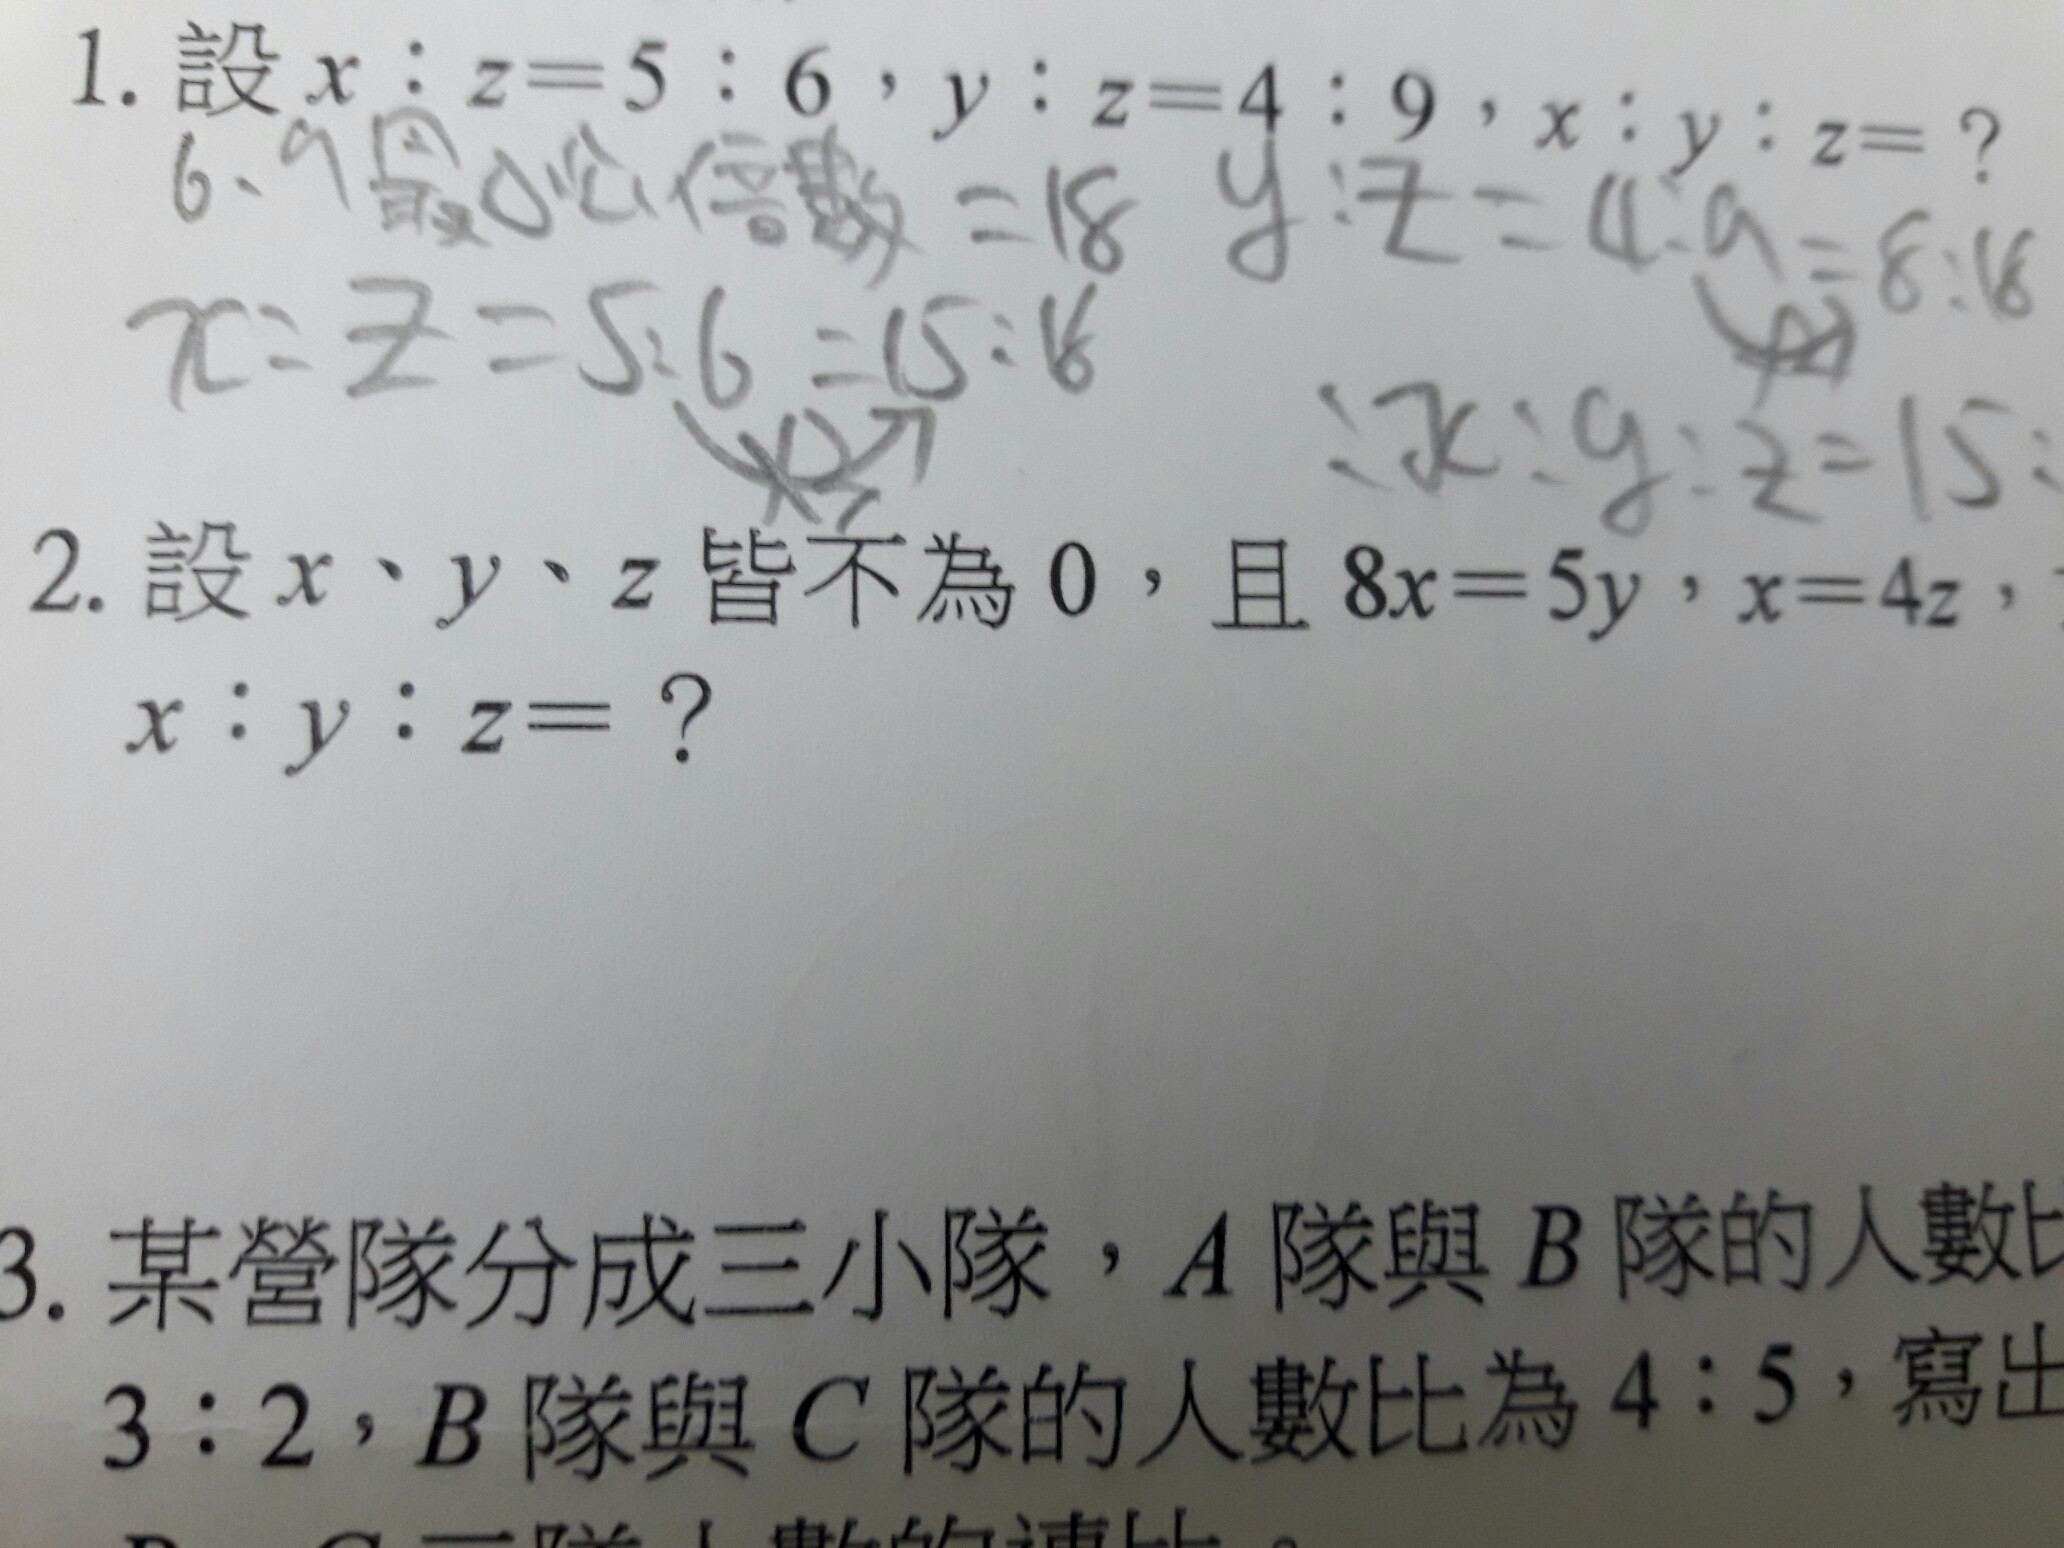 1. 設 x：z＝5：6，y：z＝4：9，x：y：z＝？
6、9最小公倍數＝18 y:z=4:9=8:18
x:z=5:6=15:18
∴x:y:z=15:
2. 設 x、y、z 皆不為 0，且 8x＝5y，x＝4z，
x：y：z＝？
3. 某營隊分成三小隊，A 隊與 B 隊的人數比
3：2，B 隊與 C 隊的人數比為 4：5，寫出
B、C 三隊人數的連比。